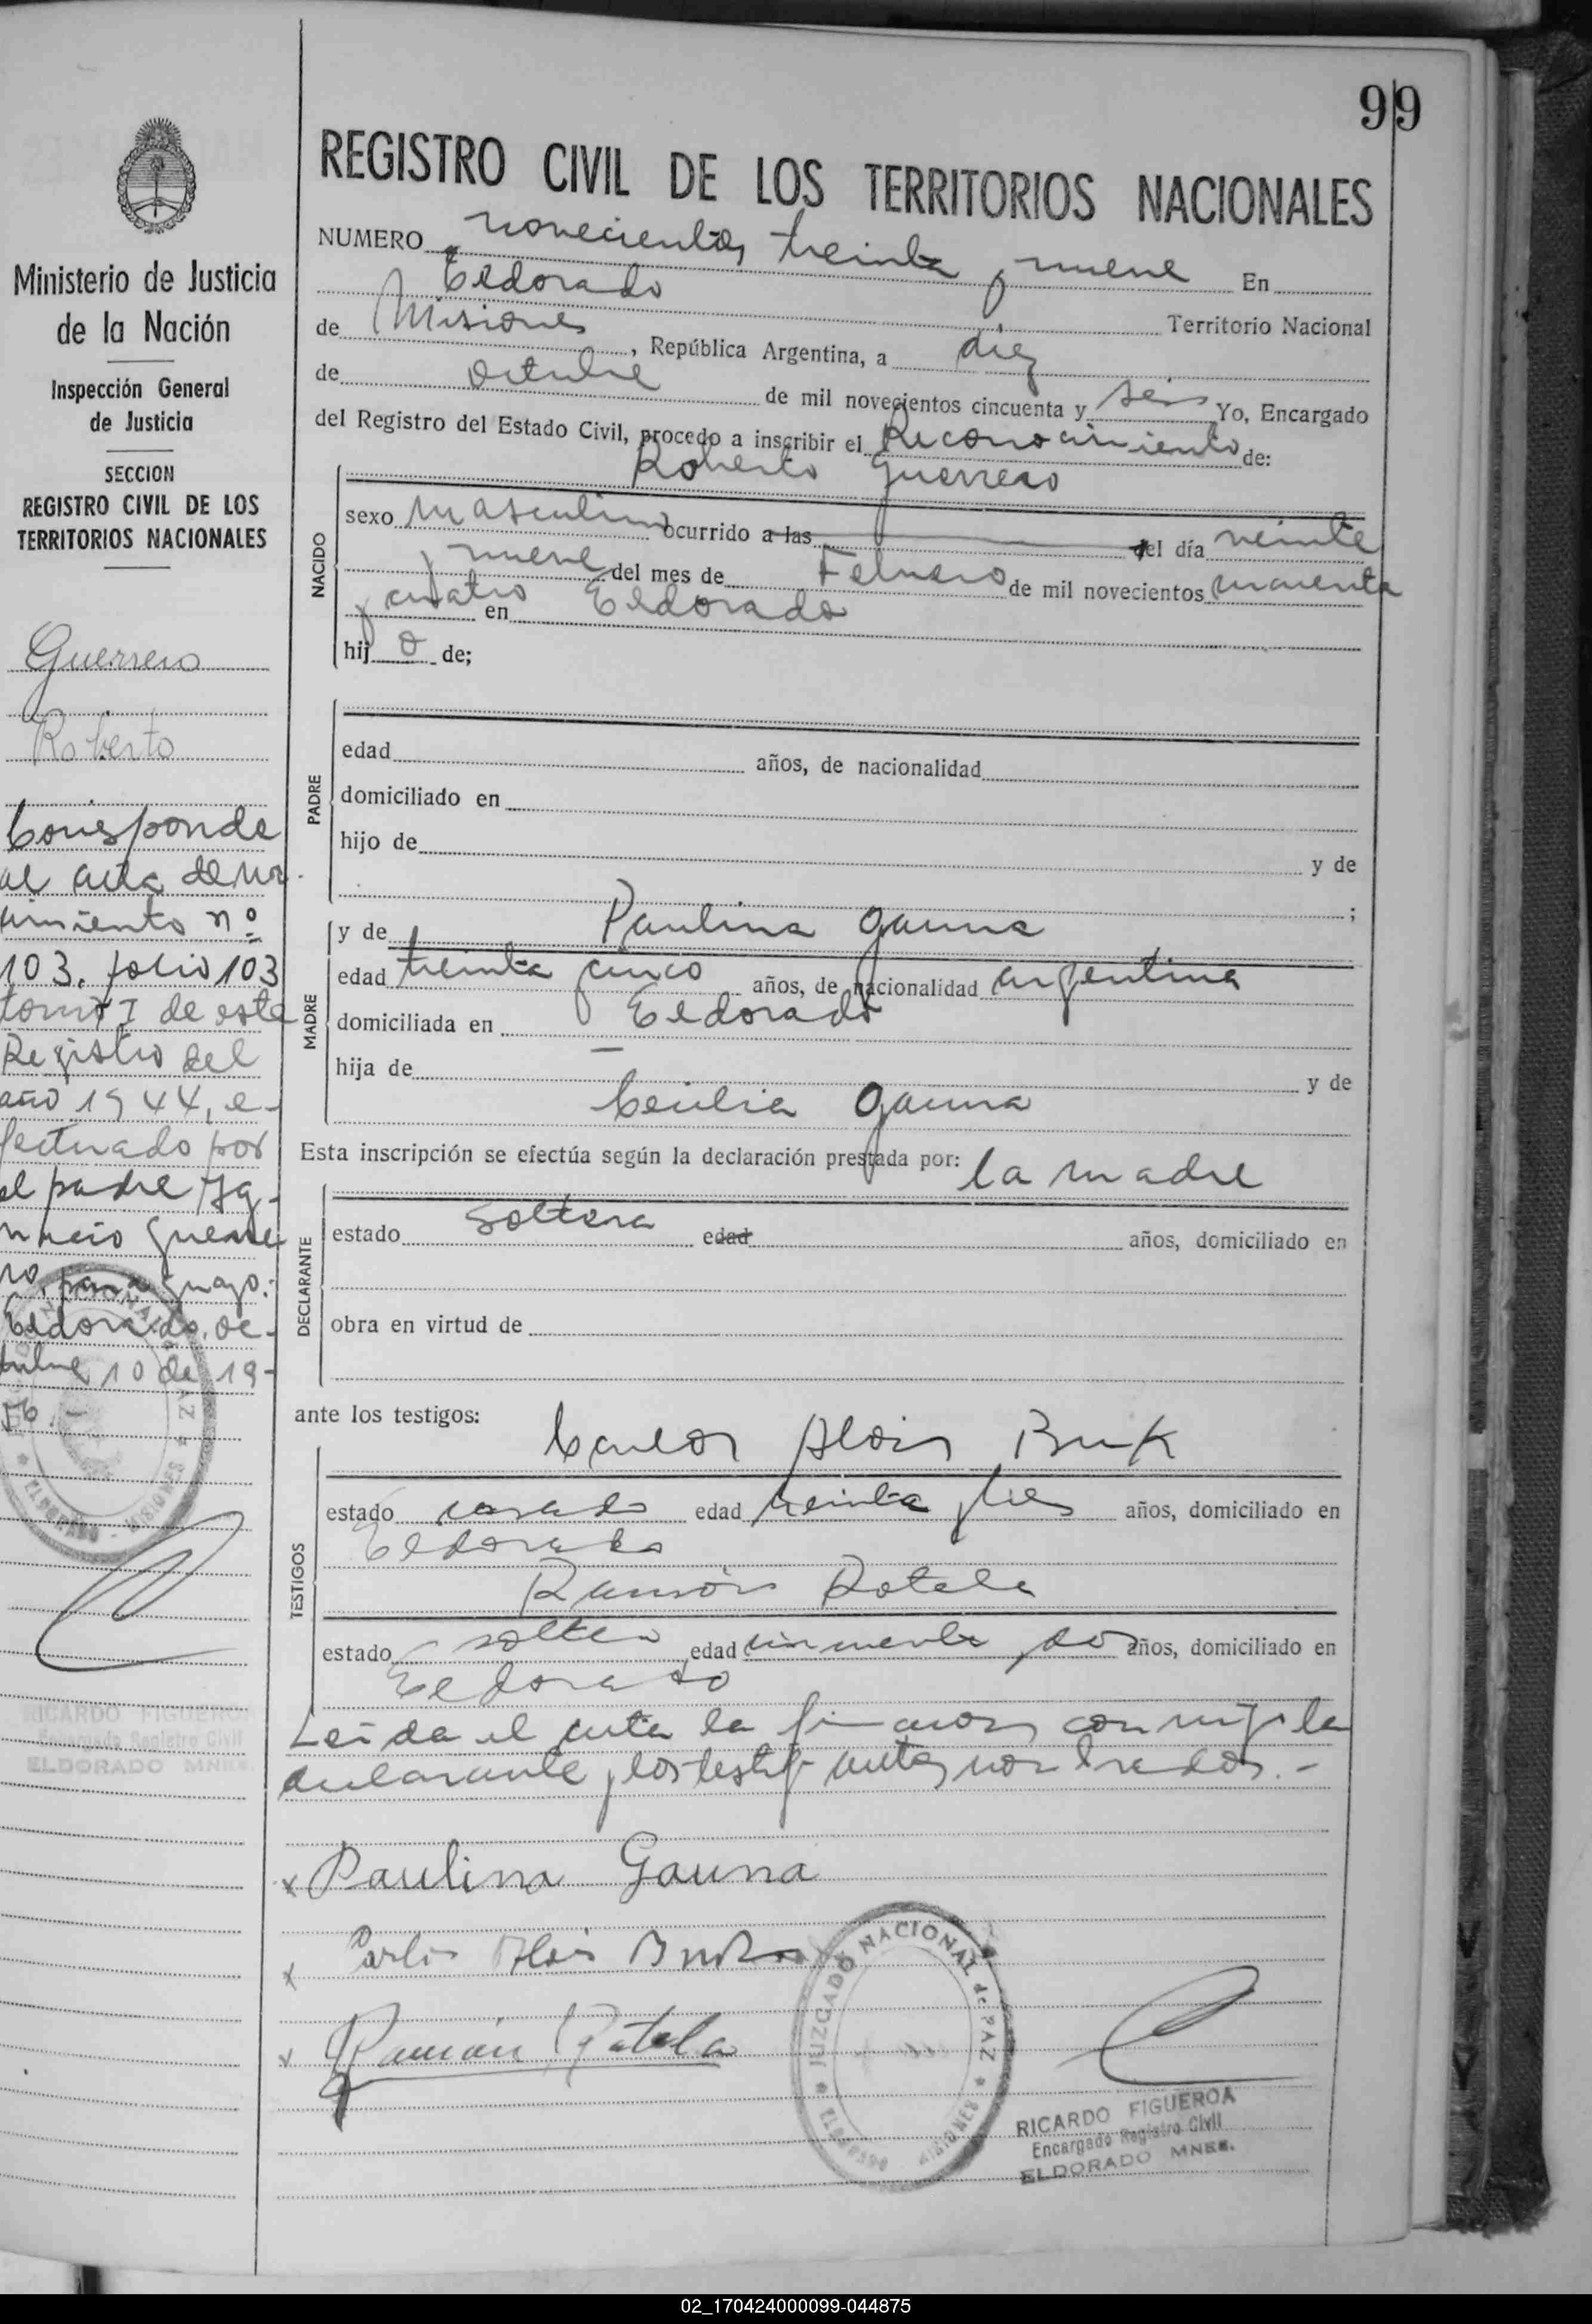 99
REGISTRO CIVIL DE LOS TERRITORIOS NACIONALES
NUMERO novecientos treinta y nueve En
Eldorado Territorio Nacional
de Misiones, República Argentina, a diez
de octubre de mil novecientos cincuenta y seis Yo, Encargado
del Registro del Estado Civil, procedo a inscribir el Reconocimiento de:
Roberto Guerrero
NACIDO
sexo masculino ocurrido a las del día veinte
y nueve del mes de Febrero de mil novecientos cuarenta
y cuatro en Eldorado
hij o de;
PADRE
edad años, de nacionalidad
domiciliado en
hijo de y de
;
MADRE
y de Paulina Gauna
edad treinta y cinco años, de nacionalidad argentina
domiciliada en Eldorado
hija de — y de
Cecilia Gauna
Esta inscripción se efectúa según la declaración prestada por: la madre
DECLARANTE
estado soltera edad años, domiciliado en
obra en virtud de
ante los testigos:
Carlos Alois Buk
TESTIGOS
estado casado edad treinta y tres años, domiciliado en
Eldorado
Ramón Rotela
estado soltero edad cincuenta y dos años, domiciliado en
Eldorado
Leída el acta la firman conmigo la
declarante y los testigos antes nombrados.-
x Paulina Gauna
x Carlos Alois
x Ramón Rotela
JUZGADO NACIONAL de PAZ * ELDORADO MISIONES *
RICARDO FIGUEROA
Encargado Registro Civil
ELDORADO MNES.
Ministerio de Justicia
de la Nación
Inspección General
de Justicia
SECCION
REGISTRO CIVIL DE LOS
TERRITORIOS NACIONALES
Guerrero
Roberto
Corresponde
al acta de na-
cimiento nº
103. folio 103
tomo I de este
Registro del
año 1944, e-
fectuado por
el padre Ig-
nacio Guerre
ro, paraguayo.-
Eldorado, oc-
tubre 10 de 19-
56.-
ELDORADO - MISIONES *
RICARDO FIGUEROA
Encargado Registro Civil
ELDORADO MNES.
02_170424000099-044875